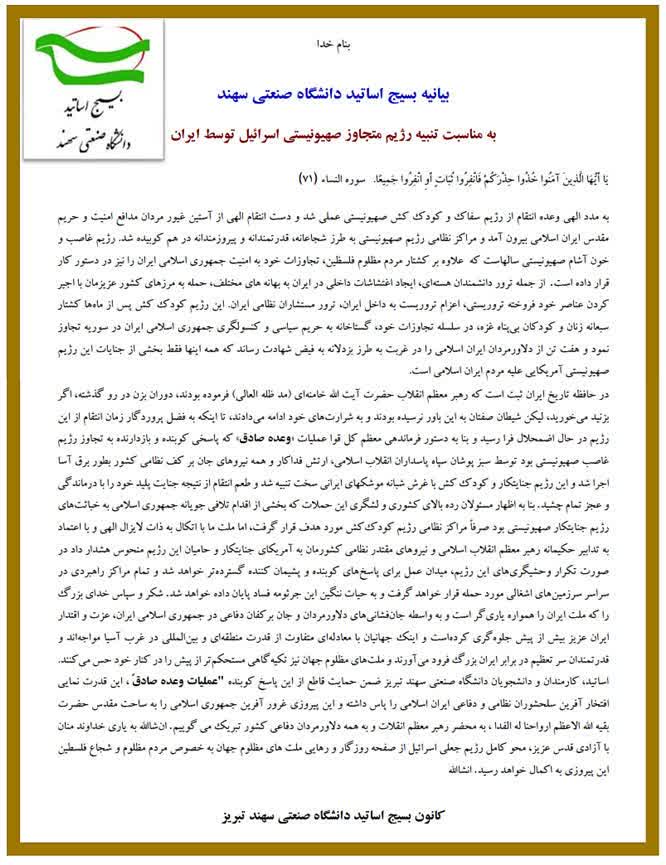 بسیج اساتید
دانشگاه صنعتی سهند
بنام خدا
بیانیه بسیج اساتید دانشگاه صنعتی سهند
به مناسبت تنبیه رژیم متجاوز صهیونیستی اسرائیل توسط ایران
يَا أَيُّهَا الَّذِينَ آمَنُوا خُذُوا حِذْرَكُمْ فَانْفِرُوا ثُبَاتٍ أَوِ انْفِرُوا جَمِيعًا. سوره النساء (۷۱)
به مدد الهی وعده انتقام از رژیم سفاک و کودک کش صهیونیستی عملی شد و دست انتقام الهی از آستین غیور مردان مدافع امنیت و حریم
مقدس ایران اسلامی بیرون آمد و مراکز نظامی رژیم صهیونیستی به طرز شجاعانه، قدرتمندانه و پیروزمندانه در هم کوبیده شد. رژیم غاصب و
خون آشام صهیونیستی سالهاست که علاوه بر کشتار مردم مظلوم فلسطین، تجاوزات خود به امنیت جمهوری اسلامی ایران را نیز در دستور کار
قرار داده است. از جمله ترور دانشمندان هسته‌ای، ایجاد اغتشاشات داخلی در ایران به بهانه های مختلف، حمله به مرزهای کشور عزیزمان با اجیر
کردن عناصر خود فروخته تروریستی، اعزام تروریست به داخل ایران، ترور مستشاران نظامی ایران. این رژیم کودک کش پس از ماه‌ها کشتار
سبعانه زنان و کودکان بی‌پناه غزه، در سلسله تجاوزات خود، گستاخانه به حریم سیاسی و کنسولگری جمهوری اسلامی ایران در سوریه تجاوز
نمود و هفت تن از دلاورمردان ایران اسلامی را در غربت به طرز بزدلانه به فیض شهادت رساند که همه اینها فقط بخشی از جنایات این رژیم
صهیونیستی آمریکایی علیه مردم ایران اسلامی است.
در حافظه تاریخ ایران ثبت است که رهبر معظم انقلاب حضرت آیت الله خامنه‌ای (مد ظله العالی) فرموده بودند، دوران بزن در رو گذشته، اگر
بزنید می‌خورید، لیکن شیطان صفتان به این باور نرسیده بودند و به شرارت‌های خود ادامه می‌دادند، تا اینکه به فضل پروردگار زمان انتقام از این
رژیم در حال اضمحلال فرا رسید و بنا به دستور فرماندهی معظم کل قوا عملیات «وعده صادق» که پاسخی کوبنده و بازدارنده به تجاوز رژیم
غاصب صهیونیستی بود توسط سبز پوشان سپاه پاسداران انقلاب اسلامی، ارتش فداکار و همه نیروهای جان بر کف نظامی کشور بطور برق آسا
اجرا شد و این رژیم جنایتکار و کودک کش با غرش شبانه موشکهای ایرانی سخت تنبیه شد و طعم انتقام از نتیجه جنایت پلید خود را با درماندگی
و عجز تمام چشید. بنا به اظهار مسئولان رده بالای کشوری و لشگری این حملات که بخشی از اقدام تلافی جویانه جمهوری اسلامی به خباثت‌های
رژیم جنایتکار صهیونیستی بود صرفاً مراکز نظامی رژیم کودک‌کش مورد هدف قرار گرفت، اما ملت ما با اتکال به ذات لایزال الهی و با اعتماد
به تدابیر حکیمانه رهبر معظم انقلاب اسلامی و نیروهای مقتدر نظامی کشورمان به آمریکای جنایتکار و حامیان این رژیم منحوس هشدار داد در
صورت تکرار وحشیگری‌های این رژیم، میدان عمل برای پاسخ‌های کوبنده و پشیمان کننده گسترده‌تر خواهد شد و تمام مراکز راهبردی در
سراسر سرزمین‌های اشغالی مورد حمله قرار خواهد گرفت و به حیات ننگین این جرثومه فساد پایان داده خواهد شد. شکر و سپاس خدای بزرگ
را که ملت ایران را همواره یاری‌گر است و به واسطه جان‌فشانی‌های دلاورمردان و جان برکفان دفاعی در جمهوری اسلامی ایران، عزت و اقتدار
ایران عزیز بیش از پیش جلوه‌گری کرده‌است و اینک جهانیان با معادله‌ای متفاوت از قدرت منطقه‌ای و بین‌المللی در غرب آسیا مواجه‌اند و
قدرتمندان سر تعظیم در برابر ایران بزرگ فرود می‌آورند و ملت‌های مظلوم جهان نیز تکیه‌گاهی مستحکم‌تر از پیش را در کنار خود حس می‌کنند.
اساتید، کارمندان و دانشجویان دانشگاه صنعتی سهند تبریز ضمن حمایت قاطع از این پاسخ کوبنده "عملیات وعده صادق"، این قدرت نمایی
افتخار آفرین سلحشوران نظامی و دفاعی ایران اسلامی را پاس داشته و این پیروزی غرور آفرین جمهوری اسلامی را به ساحت مقدس حضرت
بقیه الله الاعظم ارواحنا له الفدا ، به محضر رهبر معظم انقلاب و به همه دلاورمردان دفاعی کشور تبریک می گوییم. ان‌شاالله به یاری خداوند منان
با آزادی قدس عزیز، محو کامل رژیم جعلی اسرائیل از صفحه روزگار و رهایی ملت های مظلوم جهان به خصوص مردم مظلوم و شجاع فلسطین
این پیروزی به اکمال خواهد رسید. انشاالله
کانون بسیج اساتید دانشگاه صنعتی سهند تبریز